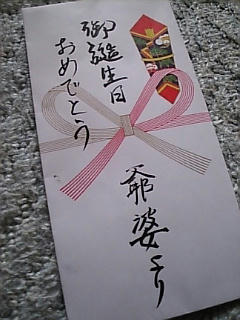 御誕生日
おめでとう
爺婆より